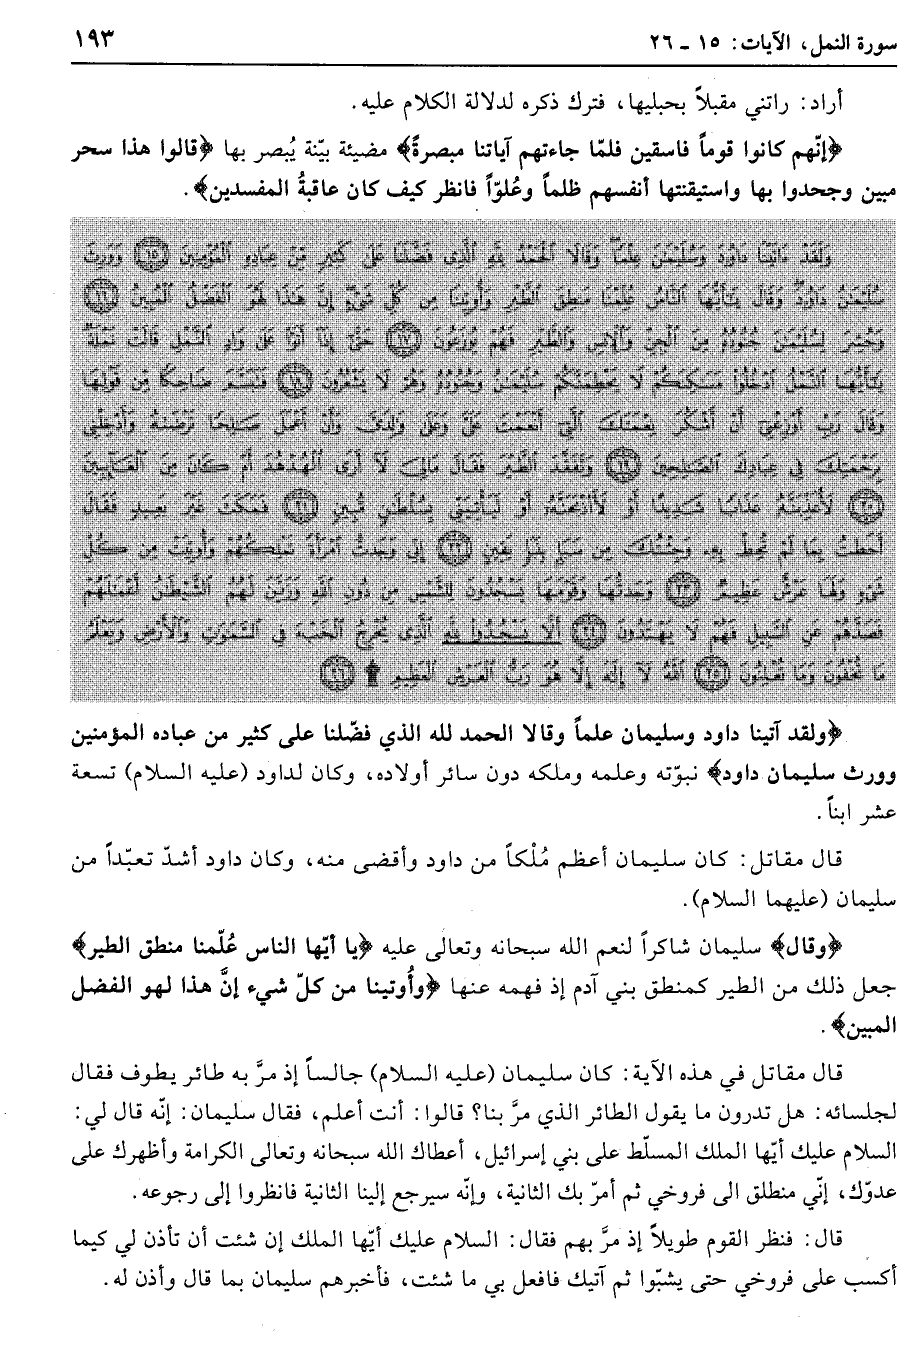 سورة النمل، الآيات: ١٥ - ٢٦ ١٩٣
أراد: راتني مقبلاً بحبليها، فترك ذكره لدلالة الكلام عليه.
﴿إنّهم كانوا قوماً فاسقين فلمّا جاءتهم آياتنا مبصرةً﴾ مضيئة بيّنة يُبصر بها ﴿قالوا هذا سحر
مبين وجحدوا بها واستيقنتها أنفسهم ظلماً وعُلوّاً فانظر كيف كان عاقبةُ المفسدين﴾.
وَلَقَدْ ءَاتَيْنَا دَاوُدَ وَسُلَيْمَٰنَ عِلْمًا وَقَالَا الْحَمْدُ لِلَّهِ الَّذِى فَضَّلَنَا عَلَىٰ كَثِيرٍ مِّنْ عِبَادِهِ الْمُؤْمِنِينَ ﴿١٥﴾ وَوَرِثَ
سُلَيْمَٰنُ دَاوُدَ وَقَالَ يَٰٓأَيُّهَا النَّاسُ عُلِّمْنَا مَنطِقَ الطَّيْرِ وَأُوتِينَا مِن كُلِّ شَىْءٍ إِنَّ هَٰذَا لَهُوَ الْفَضْلُ الْمُبِينُ ﴿١٦﴾
وَحُشِرَ لِسُلَيْمَٰنَ جُنُودُهُ مِنَ الْجِنِّ وَالْإِنسِ وَالطَّيْرِ فَهُمْ يُوزَعُونَ ﴿١٧﴾ حَتَّىٰٓ إِذَآ أَتَوْا عَلَىٰ وَادِ النَّمْلِ قَالَتْ نَمْلَةٌ
يَٰٓأَيُّهَا النَّمْلُ ادْخُلُوا مَسَٰكِنَكُمْ لَا يَحْطِمَنَّكُمْ سُلَيْمَٰنُ وَجُنُودُهُ وَهُمْ لَا يَشْعُرُونَ ﴿١٨﴾ فَتَبَسَّمَ ضَاحِكًا مِّن قَوْلِهَا
وَقَالَ رَبِّ أَوْزِعْنِىٓ أَنْ أَشْكُرَ نِعْمَتَكَ الَّتِىٓ أَنْعَمْتَ عَلَىَّ وَعَلَىٰ وَٰلِدَىَّ وَأَنْ أَعْمَلَ صَٰلِحًا تَرْضَىٰهُ وَأَدْخِلْنِى
بِرَحْمَتِكَ فِى عِبَادِكَ الصَّٰلِحِينَ ﴿١٩﴾ وَتَفَقَّدَ الطَّيْرَ فَقَالَ مَالِىَ لَآ أَرَى الْهُدْهُدَ أَمْ كَانَ مِنَ الْغَآئِبِينَ
﴿٢٠﴾ لَأُعَذِّبَنَّهُ عَذَابًا شَدِيدًا أَوْ لَأَاْذْبَحَنَّهُ أَوْ لَيَأْتِيَنِّى بِسُلْطَٰنٍ مُّبِينٍ ﴿٢١﴾ فَمَكَثَ غَيْرَ بَعِيدٍ فَقَالَ
أَحَطتُ بِمَا لَمْ تُحِطْ بِهِ وَجِئْتُكَ مِن سَبَإٍ بِنَبَإٍ يَقِينٍ ﴿٢٢﴾ إِنِّى وَجَدتُّ امْرَأَةً تَمْلِكُهُمْ وَأُوتِيَتْ مِن كُلِّ
شَىْءٍ وَلَهَا عَرْشٌ عَظِيمٌ ﴿٢٣﴾ وَجَدتُّهَا وَقَوْمَهَا يَسْجُدُونَ لِلشَّمْسِ مِن دُونِ اللَّهِ وَزَيَّنَ لَهُمُ الشَّيْطَٰنُ أَعْمَٰلَهُمْ
فَصَدَّهُمْ عَنِ السَّبِيلِ فَهُمْ لَا يَهْتَدُونَ ﴿٢٤﴾ أَلَّا يَسْجُدُوا لِلَّهِ الَّذِى يُخْرِجُ الْخَبْءَ فِى السَّمَٰوَٰتِ وَالْأَرْضِ وَيَعْلَمُ
مَا تُخْفُونَ وَمَا تُعْلِنُونَ ﴿٢٥﴾ اللَّهُ لَآ إِلَٰهَ إِلَّا هُوَ رَبُّ الْعَرْشِ الْعَظِيمِ ۩ ﴿٢٦﴾
﴿ولقد آتينا داود وسليمان علماً وقالا الحمد لله الذي فضّلنا على كثير من عباده المؤمنين
وورث سليمان داود﴾ نبوّته وعلمه وملكه دون سائر أولاده، وكان لداود (عليه السلام) تسعة
عشر ابناً.
قال مقاتل: كان سليمان أعظم مُلْكاً من داود وأقضى منه، وكان داود أشدّ تعبّداً من
سليمان (عليهما السلام).
﴿وقال﴾ سليمان شاكراً لنعم الله سبحانه وتعالى عليه ﴿يا أيّها الناس عُلّمنا منطق الطير﴾
جعل ذلك من الطير كمنطق بني آدم إذ فهمه عنها ﴿وأُوتينا من كلّ شيء إنَّ هذا لهو الفضل
المبين﴾.
قال مقاتل في هذه الآية: كان سليمان (عليه السلام) جالساً إذ مرَّ به طائر يطوف فقال
لجلسائه: هل تدرون ما يقول الطائر الذي مرَّ بنا؟ قالوا: أنت أعلم، فقال سليمان: إنّه قال لي:
السلام عليك أيّها الملك المسلّط على بني إسرائيل، أعطاك الله سبحانه وتعالى الكرامة وأظهرك على
عدوّك، إنّي منطلق الى فروخي ثم أمرّ بك الثانية، وإنّه سيرجع إلينا الثانية فانظروا إلى رجوعه.
قال: فنظر القوم طويلاً إذ مرَّ بهم فقال: السلام عليك أيّها الملك إن شئت أن تأذن لي كيما
أكسب على فروخي حتى يشبّوا ثم آتيك فافعل بي ما شئت، فأخبرهم سليمان بما قال وأذن له.